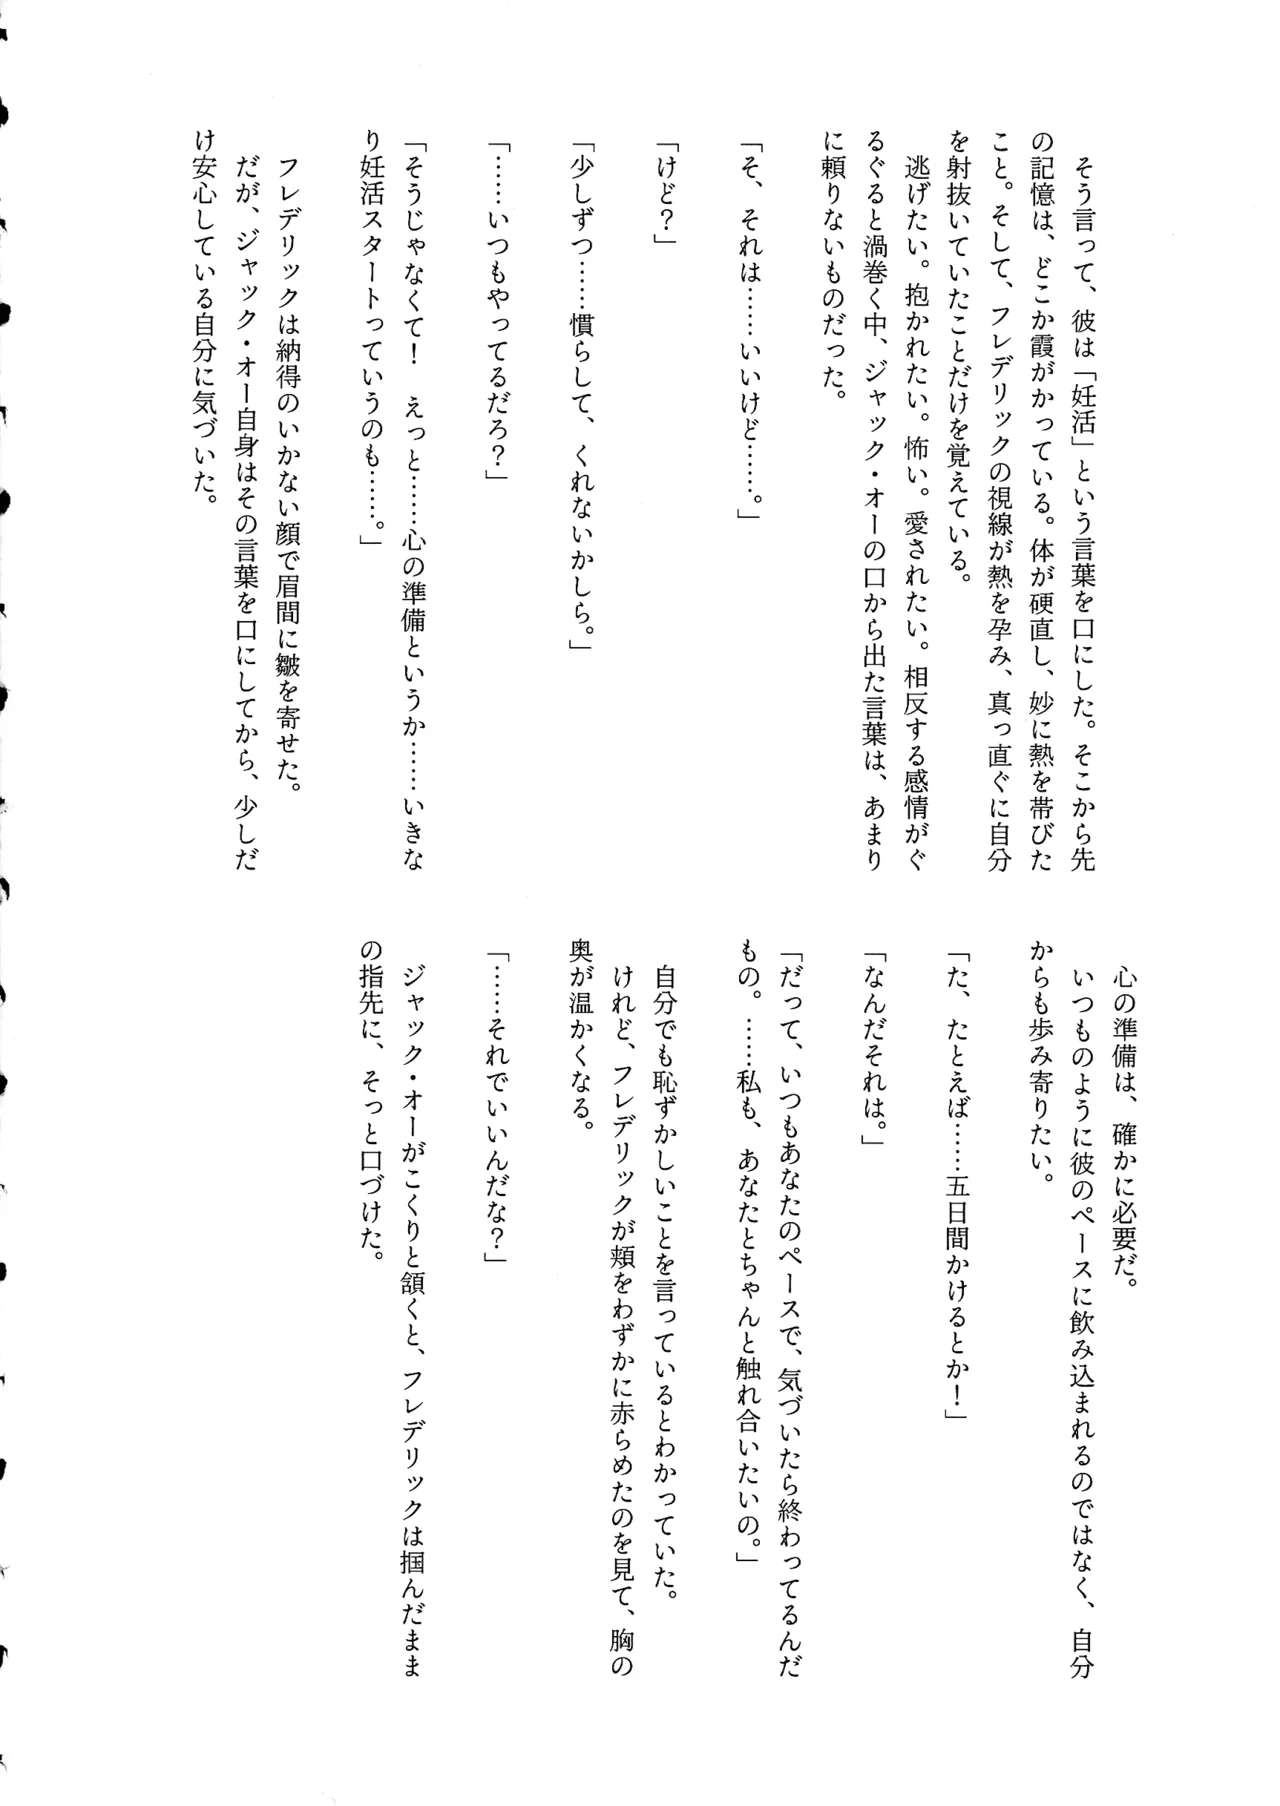 そう言って、彼は「妊活」という言葉を口にした。そこから先
の記憶は、どこか霞がかっている。体が硬直し、妙に熱を帯びた
こと。そして、フレデリックの視線が熱を孕み、真っ直ぐに自分
を射抜いていたことだけを覚えている。
　逃げたい。抱かれたい。怖い。愛されたい。相反する感情がぐ
るぐると渦巻く中、ジャック・オーの口から出た言葉は、あまり
に頼りないものだった。
「そ、それは……いいけど……。」
「けど？」
「少しずつ……慣らして、くれないかしら。」
「……いつもやってるだろ？」
「そうじゃなくて！　えっと……心の準備というか……いきな
り妊活スタートっていうのも……。」
　フレデリックは納得のいかない顔で眉間に皺を寄せた。
　だが、ジャック・オー自身はその言葉を口にしてから、少しだ
け安心している自分に気づいた。
　心の準備は、確かに必要だ。
　いつものように彼のペースに飲み込まれるのではなく、自分
からも歩み寄りたい。
「た、たとえば……五日間かけるとか！」
「なんだそれは。」
「だって、いつもあなたのペースで、気づいたら終わってるんだ
もの。……私も、あなたとちゃんと触れ合いたいの。」
　自分でも恥ずかしいことを言っているとわかっていた。
　けれど、フレデリックが頬をわずかに赤らめたのを見て、胸の
奥が温かくなる。
「……それでいいんだな？」
　ジャック・オーがこくりと頷くと、フレデリックは掴んだまま
の指先に、そっと口づけた。